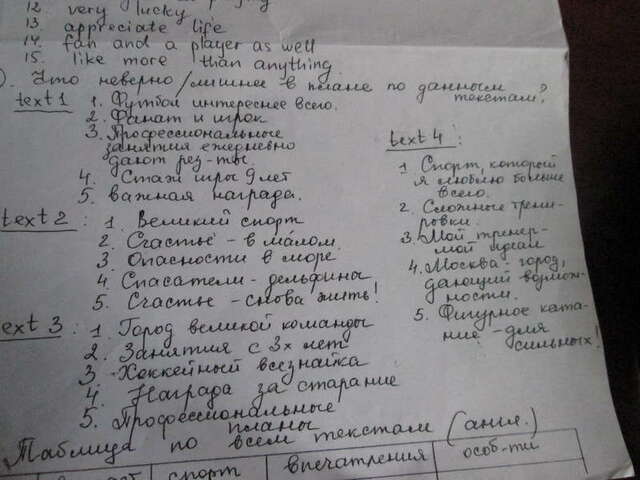 12. very lucky
13. appreciate life
14. fan and a player as well
15. like more than anything.
). Что неверно/лишнее в плане по данным текстам?
text 1 1. Футбол интереснее всего.
2. Фанат и игрок
3. Профессиональные
занятия ежедневно
дают рез-ты.
4. Стаж игры 9 лет
5. важная награда.
text 2 : 1. Великий спорт
2. Счастье - в малом.
3. Опасности в море
4. Спасатели - дельфины
5. Счастье - снова жить!
ext 3 : 1. Город великой команды
2. Занятия с 3х лет
3. Хоккейный всезнайка
4. Награда за старание
5. Профессиональные
планы
text 4 :
1. Спорт, который
я люблю больше
всего.
2. Сложные трени-
ровки.
3. Мой тренер-
мой идеал
4. Москва - город,
дающий возмож-
ности.
5. Фигурное ката-
ние - для
сильных!
Таблица по всем текстам (англ.)
спорт
впечатления
особ-ти